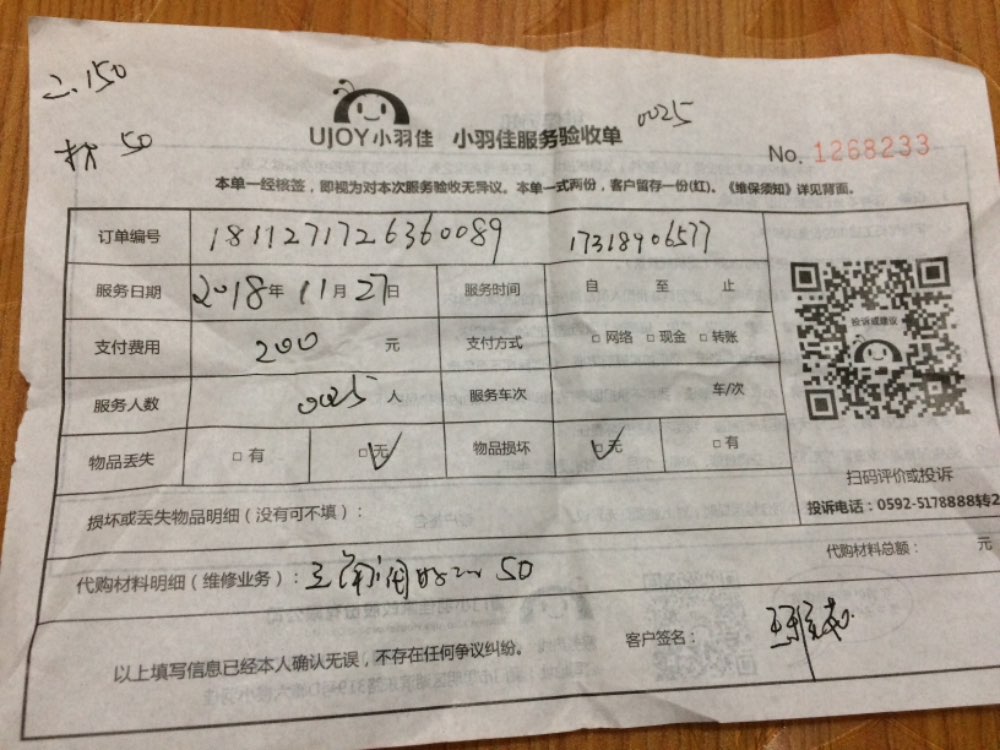 工150
材50
UJOY小羽佳 小羽佳服务验收单 0025
No. 1268233
本单一经核签，即视为对本次服务验收无异议。本单一式两份，客户留存一份(红)。《维保须知》详见背面。
订单编号 1811271726360089 17318906577
服务日期 2018年11月27日 服务时间 自 至 止
支付费用 200 元 支付方式 □网络 □现金 □转账
投诉或建议
服务人数 0025人 服务车次 车/次
物品丢失 □有 □无 物品损坏 □无 □有
扫码评价或投诉
投诉电话：0592-5178888转2
损坏或丢失物品明细（没有可不填）：
代购材料总额： 元
代购材料明细（维修业务）： 50
客户签名：
以上填写信息已经本人确认无误，不存在任何争议纠纷。